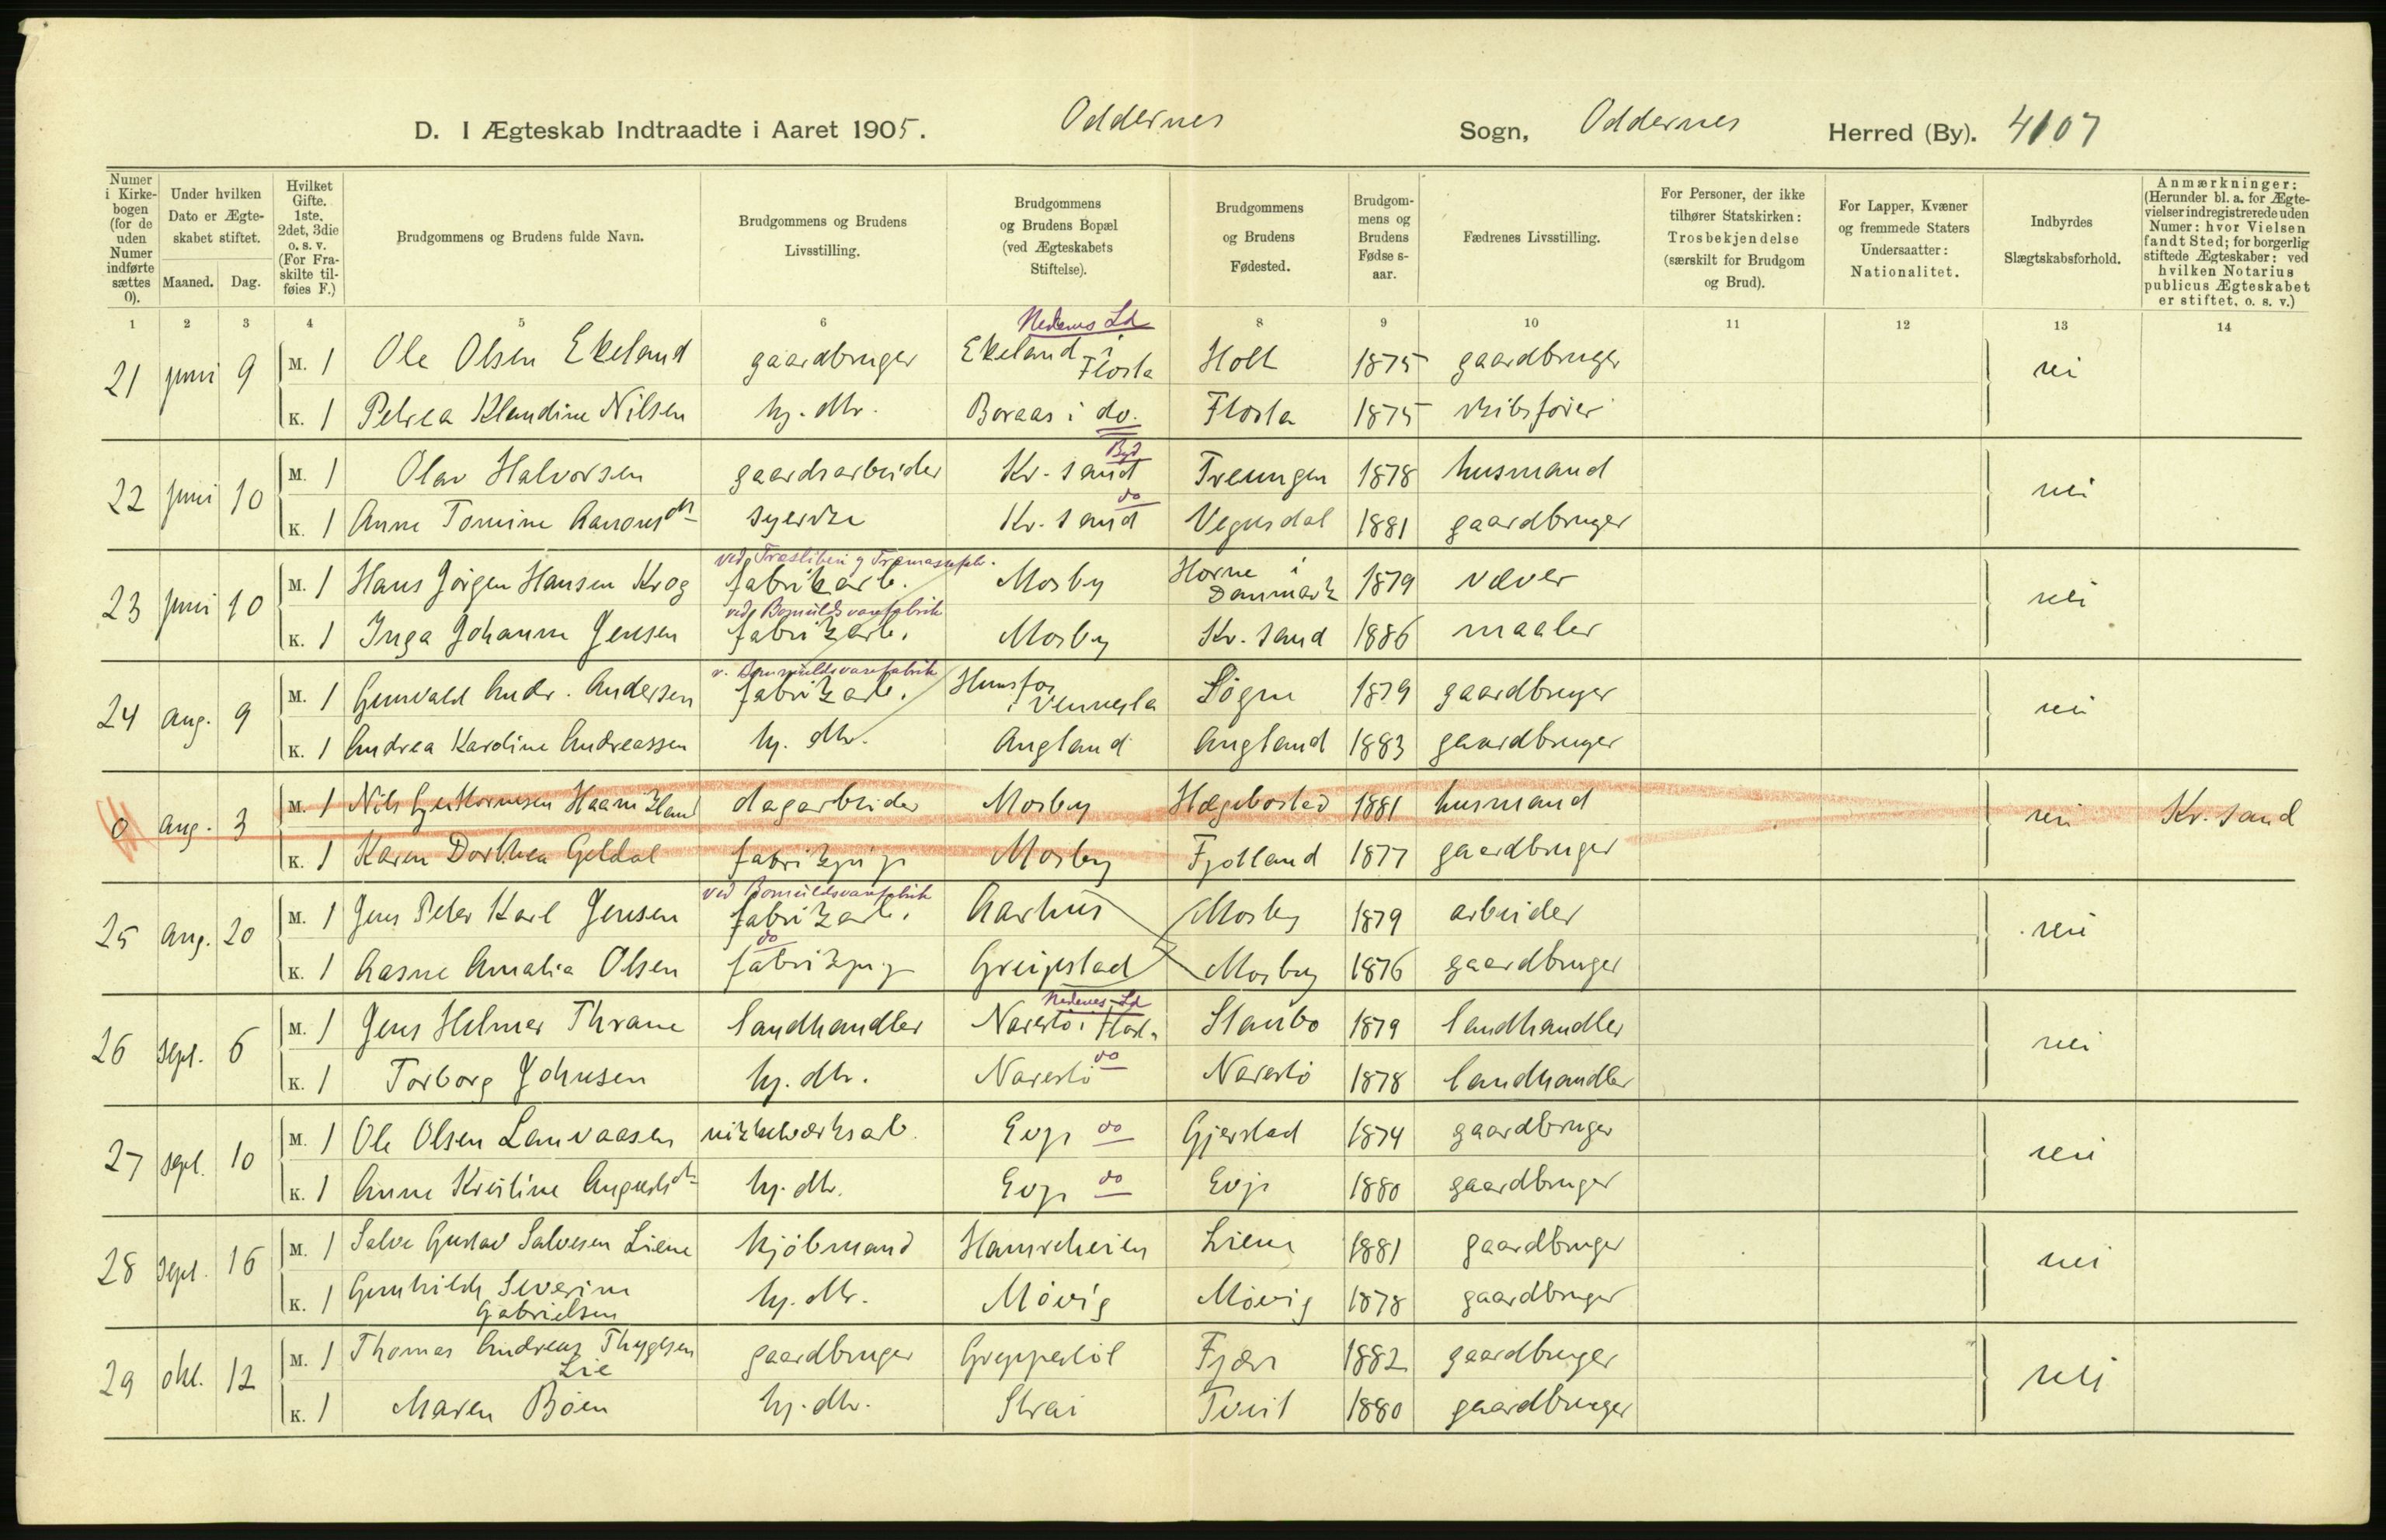 D. I Ægteskab Indtraadte i Aaret 1905. Oddernes Sogn, Oddernes Herred (By). 4107
Numer i Kirkebogen (for de uden Numer indførte sættes 0).
Under hvilken Dato er Ægteskabet stiftet.
Maaned. Dag.
Hvilket Gifte. 1ste, 2det, 3die o. s. v. (For Fraskilte tilføies F.)
Brudgommens og Brudens fulde Navn.
Brudgommens og Brudens Livsstilling.
Brudgommens og Brudens Bopæl (ved Ægteskabets Stiftelse).
Brudgommens og Brudens Fødested.
Brudgommens og Brudens Fødselsaar.
Fædrenes Livsstilling.
For Personer, der ikke tilhører Statskirken: Trosbekjendelse (særskilt for Brudgom og Brud).
For Lapper, Kvæner og fremmede Staters Undersaatter: Nationalitet.
Indbyrdes Slægtskabsforhold.
Anmærkninger: (Herunder bl. a. for Ægtevielser indregistrerede uden Numer: hvor Vielsen fandt Sted; for borgerlig stiftede Ægteskaber: ved hvilken Notarius publicus Ægteskabet er stiftet, o. s. v.)
1 2 3 4 5 6 7 8 9 10 11 12 13 14
Nedenes Ld
21 juni 9 M. 1 Ole Olsen Ekeland gaardbruger Ekeland i Flosta Holt 1875 gaardbruger nei
K. 1 Petrea Klaudine Nilsen hj. dtr. Boraas i do. Flosta 1875 skibsfører
Byd
22 juni 10 M. 1 Olav Halvorsen gaardsarbeider Kr. sand Treungen 1878 husmand nei
do
K. 1 Anne Tomine Aanonsdtr syerske Kr. sand Vegusdal 1881 gaardbruger
ved Træsliberi og Træmassefabr.
23 juni 10 M. 1 Hans Jørgen Hansen Krog fabrikarb. Mosby Horne i Danmark 1879 væver nei
ved Bomuldsvarefabrik
K. 1 Inga Johanne Jensen fabrikarb. Mosby Kr. sand 1886 maaler
v. Bomuldsvarefabrik
24 aug. 9 M. 1 Gunvald Andr. Andersen fabrikarb. Hunsfos i Vennesla Søgne 1879 gaardbruger nei
K. 1 Andrea Karoline Andreassen hj. dtr. Augland Augland 1883 gaardbruger
0 aug. 3 M. 1 Nils Guttormsen Haanikland dagarbeider Mosby Hægebostad 1881 husmand nei Kr. sand
K. 1 Karen Dorthea Geldal fabrikpige Mosby Fjotland 1877 gaardbruger
ved Bomuldsvarefabrik
25 aug. 20 M. 1 Jens Peter Karl Jensen fabrikarb. Aarhus Mosby 1879 arbeider nei
do
K. 1 Aasne Amalia Olsen fabrikpige Greipstad Mosby 1876 gaardbruger
Nedenes Ld
26 sept. 6 M. 1 Jens Helmer Thrane landhandler Narestø i Flosta Staubo 1879 landhandler nei
do
K. 1 Torborg Johnsen hj. dtr. Narestø Narestø 1878 landhandler
27 sept. 10 M. 1 Ole Olsen Lauvaasen nikkelverksarb. Evje do Gjerstad 1874 gaardbruger nei
K. 1 Anne Kristine Augustsdtr hj. dtr. Evje do Evje 1880 gaardbruger
28 sept. 16 M. 1 Salve Gustav Salvesen Liene kjøbmand Hamreheien Liene 1881 gaardbruger nei
K. 1 Gunhilde Severine Gabrielsen hj. dtr. Møvig Møvig 1878 gaardbruger
29 okt. 12 M. 1 Thomas Andreas Thygesen Lie gaardbruger Greppestøl Fjære 1882 gaardbruger nei
K. 1 Maren Bøen hj. dtr. Strai Tveit 1880 gaardbruger